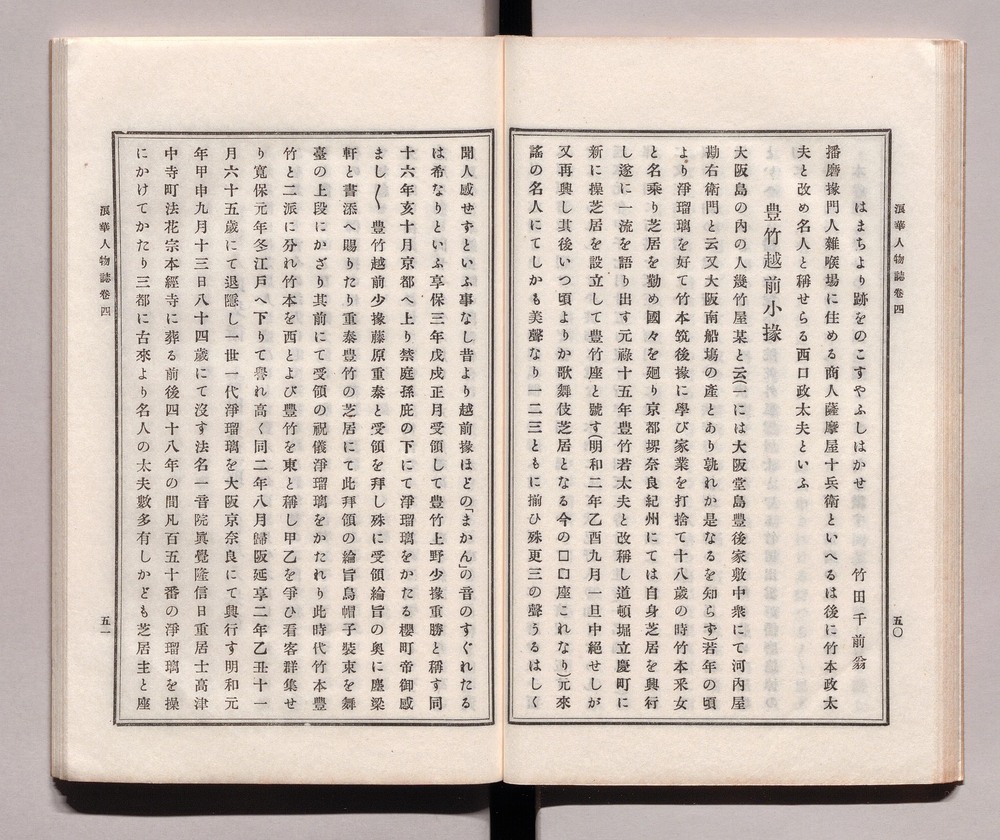 浪華人物誌卷四
五〇
はまちより跡をのこすやふしはかせ 竹田千前翁
播磨掾門人雜喉場に住める商人薩摩屋十兵衛といへるは後に竹本政太
夫と改め名人と稱せらる西口政太夫といふ
豊竹越前小掾
大阪島の內の人幾竹屋某と云(一には大阪堂島豊後家敷中衆にて河內屋
勘右衛門と云又大阪南船塲の產とあり孰れか是なるを知らず)若年の頃
より淨瑠璃を好て竹本筑後掾に學び家業を打捨て十八歲の時竹本釆女
と名乘り芝居を勤め國々を廻り京都堺奈良紀州にては自身芝居を興行
し遂に一流を語り出す元祿十五年豊竹若太夫と改稱し道頓堀立慶町に
新に操芝居を設立して豊竹座と號す(明和二年乙酉九月一旦中絕せしが
又再興し其後いつ頃よりか歌舞伎芝居となる今の口口座これなり)元來
謠の名人にてしかも美聲なり一二三ともに揃ひ殊更三の聲うるはしく
聞人感せずといふ事なし昔より越前掾ほどの「まかん」の音のすぐれたる
は希なりといふ享保三年戊戌正月受領して豊竹上野少掾重勝と稱す同
十六年亥十月京都へ上り禁庭孫庇の下にて淨瑠璃をかたる櫻町帝御感
まし〱豊竹越前少掾藤原重泰と受領を拜し殊に受領綸旨の奧に塵梁
軒と書添へ賜りたり重泰豊竹の芝居にて此拜領の綸旨烏帽子裝束を舞
臺の上段にかざり其前にて受領の祝儀淨瑠璃をかたれり此時代竹本豊
竹と二派に分れ竹本を西とよび豊竹を東と稱し甲乙を爭ひ看客群集せ
り寬保元年冬江戶へ下りて譽れ高く同二年八月歸阪延享二年乙丑十一
月六十五歲にて退隱し一世一代淨瑠璃を大阪京奈良にて興行す明和元
年甲申九月十三日八十四歲にて沒す法名一音院眞覺隆信日重居士高津
中寺町法花宗本經寺に葬る前後四十八年の間凡百五十番の淨瑠璃を操
にかけてかたり三都に古來より名人の太夫數多有しかども芝居主と座
浪華人物誌卷四
五一